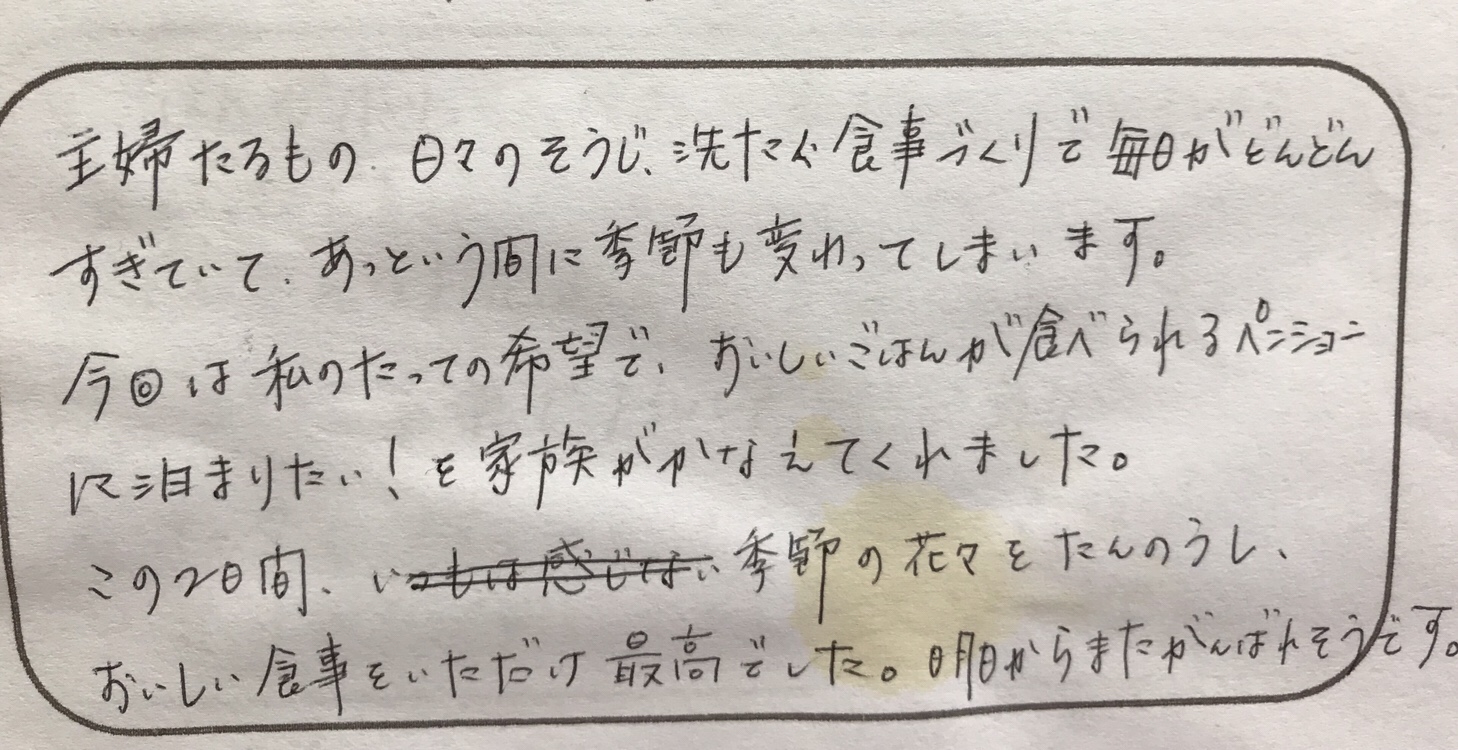 主婦たるもの、日々のそうじ、洗たく食事づくりで毎日がどんどん
すぎていて、あっという間に季節も変わってしまいます。
今回は私のたっての希望で、おいしいごはんが食べられるペンション
に泊まりたい!を家族がかなえてくれました。
この2日間、いつもは感じない季節の花々をたんのうし、
おいしい食事をいただけ最高でした。明日からまたがんばれそうです。